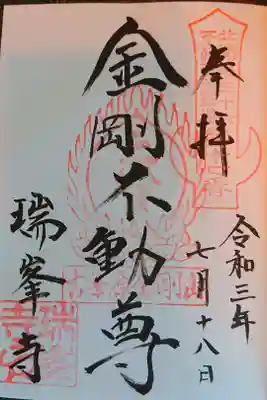 奉拝
令和三年
七月十八日
金剛不動尊
瑞峯寺